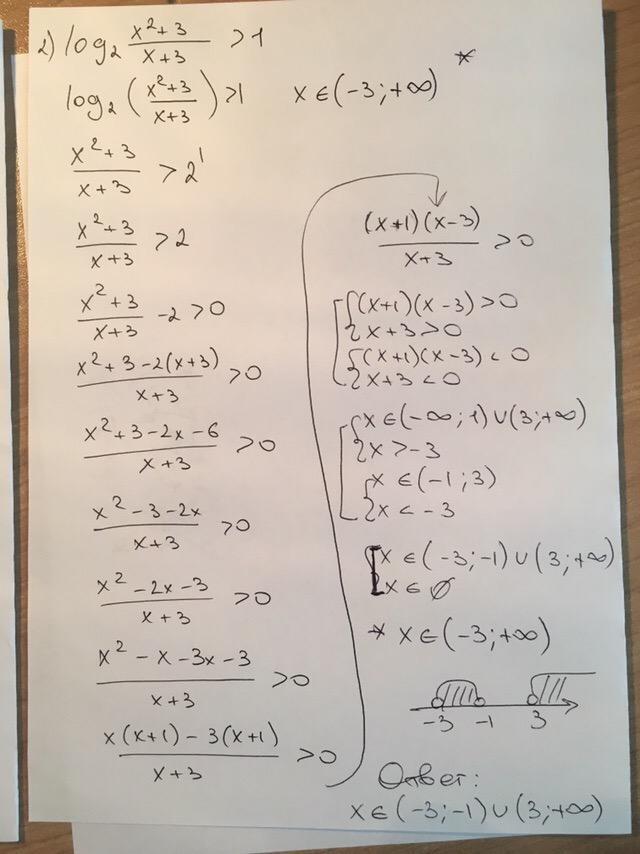 2) log₂ (x²+3)/(x+3) > 1
log₂ ((x²+3)/(x+3)) > 1    x ∈ (-3; +∞) *
(x²+3)/(x+3) > 2¹
(x²+3)/(x+3) > 2
(x²+3)/(x+3) - 2 > 0
(x²+3-2(x+3))/(x+3) > 0
(x²+3-2x-6)/(x+3) > 0
(x²-3-2x)/(x+3) > 0
(x²-2x-3)/(x+3) > 0
(x²-x-3x-3)/(x+3) > 0
(x(x+1)-3(x+1))/(x+3) > 0
((x+1)(x-3))/(x+3) > 0
[ { (x+1)(x-3) > 0
{ x+3 > 0
{ (x+1)(x-3) < 0
{ x+3 < 0
[ { x ∈ (-∞; 1) ∪ (3; +∞)
{ x > -3
{ x ∈ (-1; 3)
{ x < -3
[ x ∈ (-3; -1) ∪ (3; +∞)
x ∈ ∅
* x ∈ (-3; +∞)
-3 -1 3
Ответ:
x ∈ (-3; -1) ∪ (3; +∞)